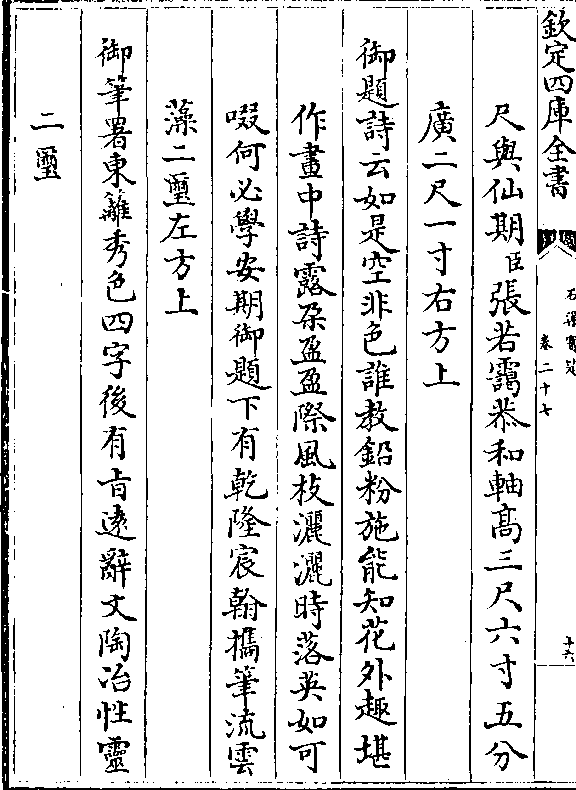 欽定四庫全書
石渠寶笈
卷二十七
十六
尺與仙期臣張若靄恭和軸髙三尺六寸五分
廣二尺一寸右方上
御題詩云如是空非色誰教鉛粉施能知花外趣堪
作畫中詩露朶盈盈際風枝灑灑時落英如可
啜何必學安期御題下有乾隆宸翰擕筆流雲
藻二璽左方上
御筆署東籬秀色四字後有㫖逺辭文陶冶性靈
二璽